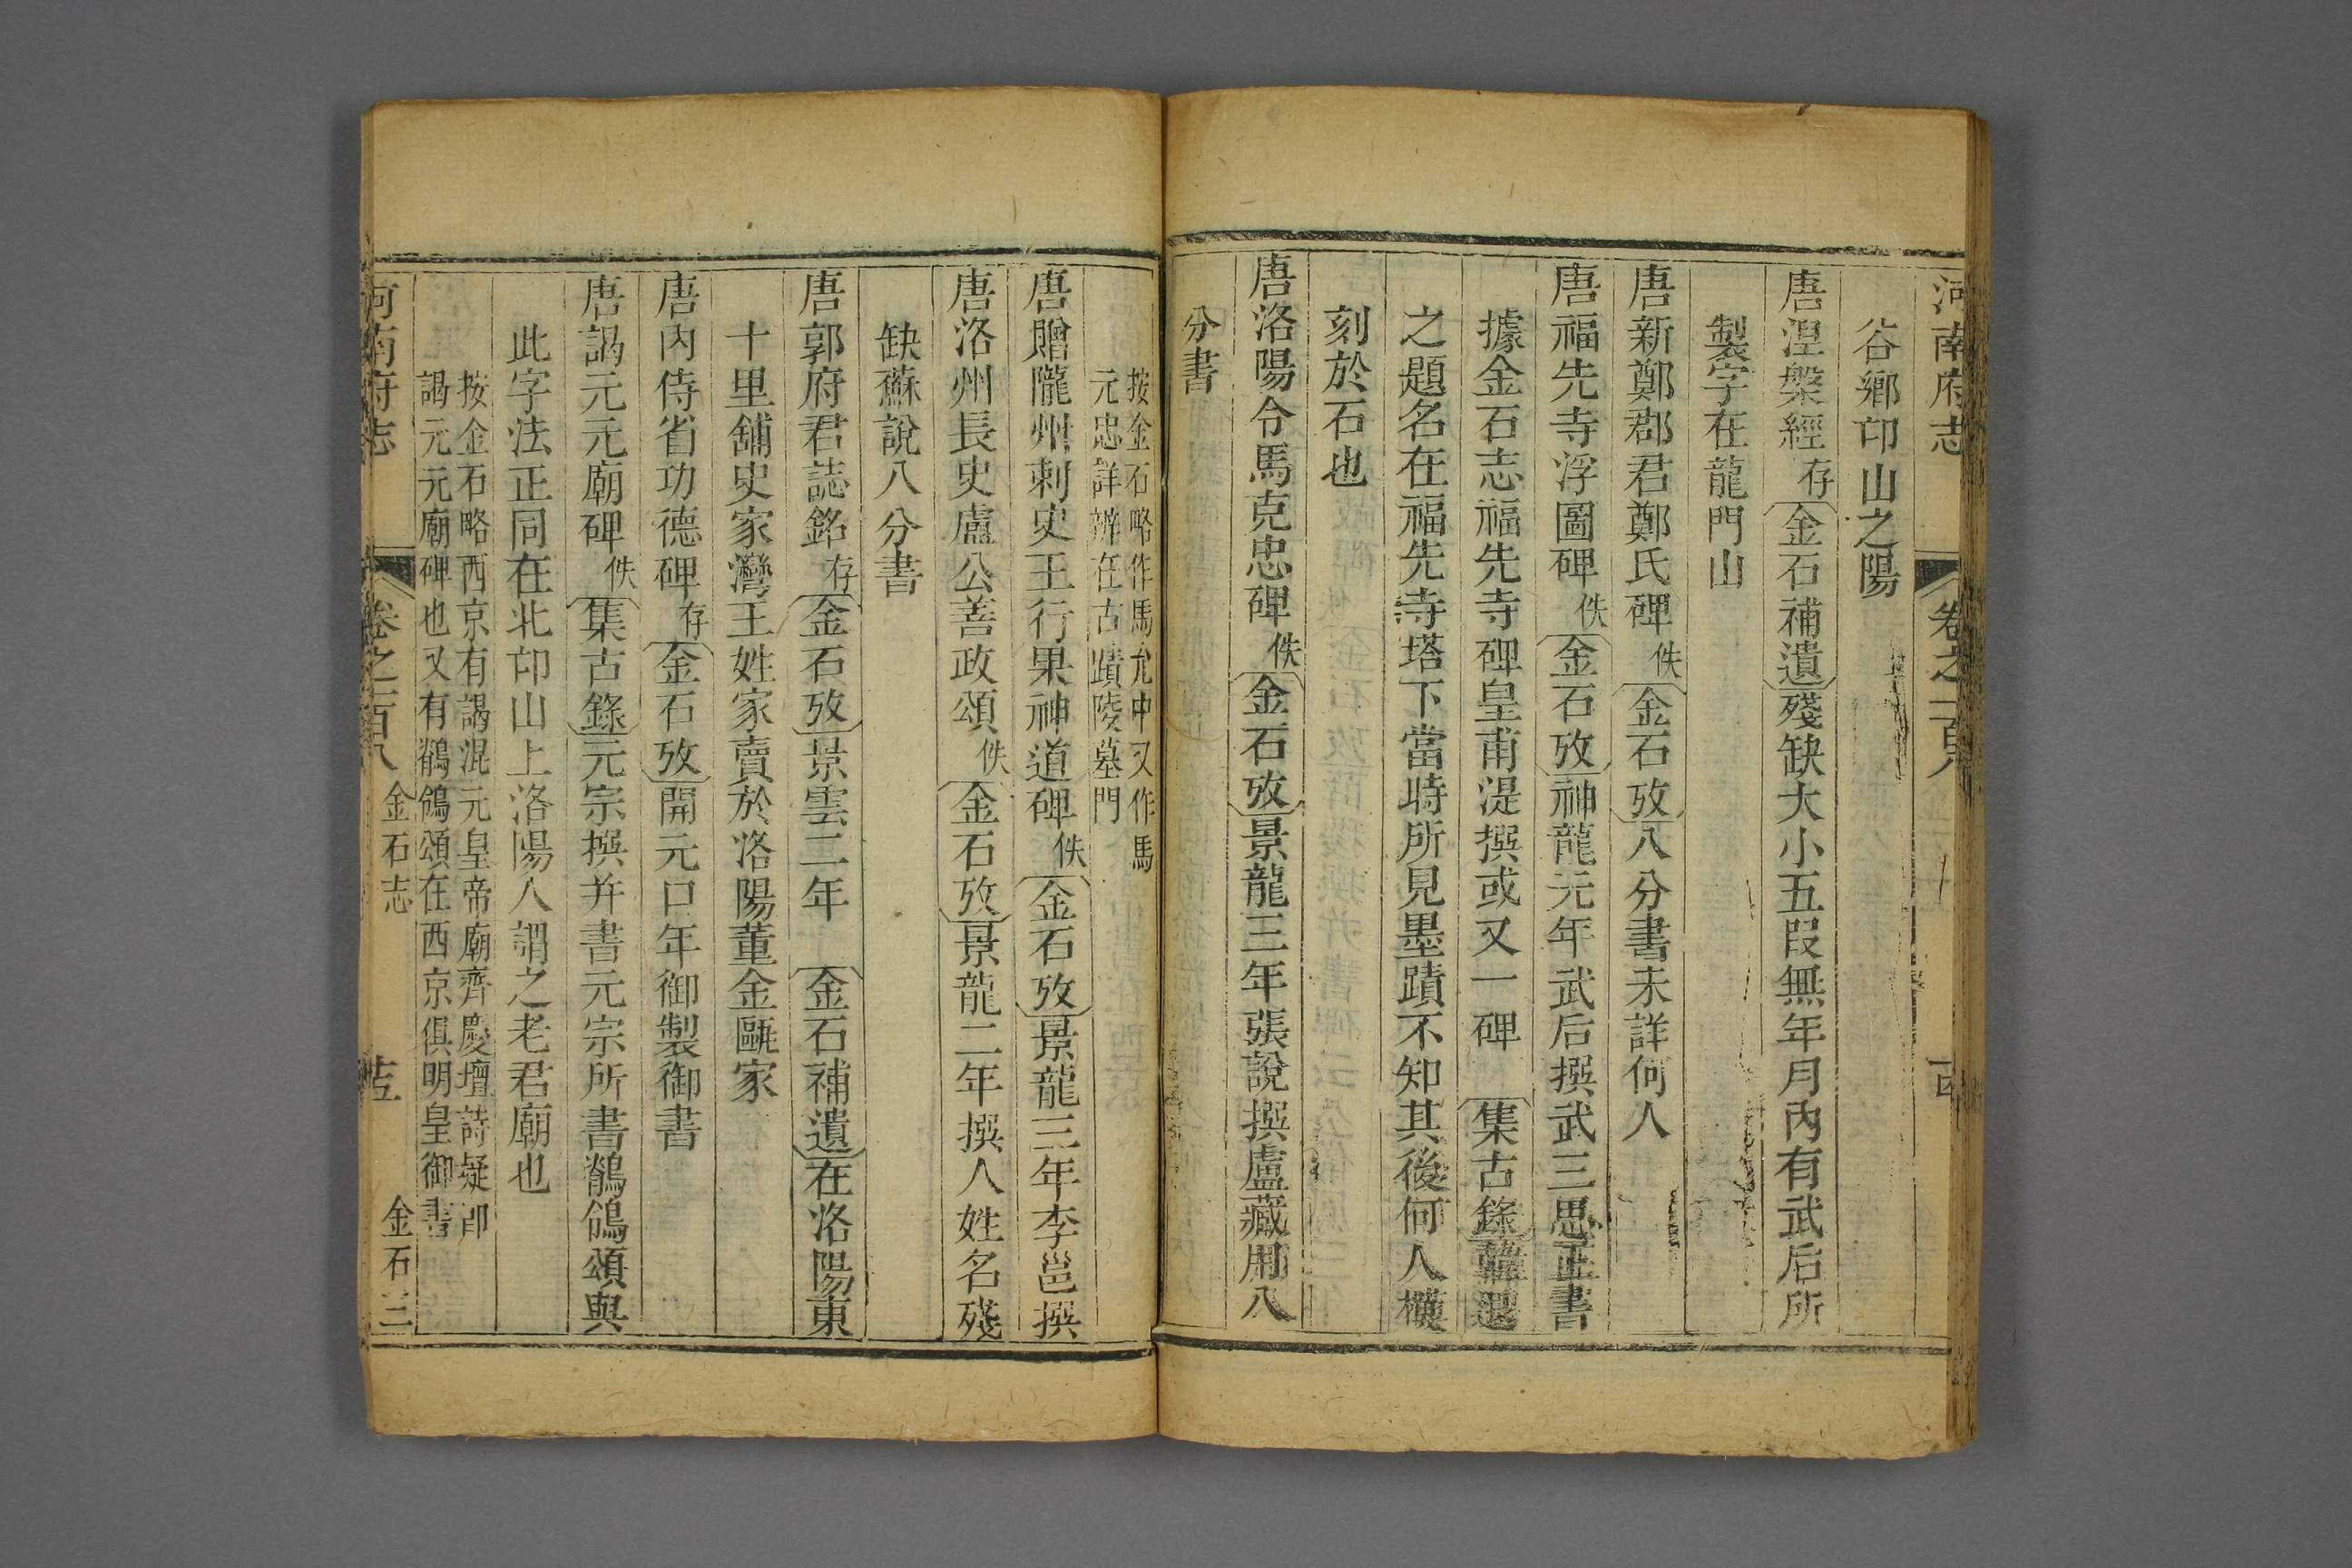 河南府志 卷之一百八
谷鄉邙山之陽
唐湼槃經存金石補遺殘缺大小五段無年月內有武后所
製字在龍門山
唐新鄭郡君鄭氏碑佚金石攷八分書未詳何人
唐福先寺浮圖碑佚金石攷神龍元年武后撰武三思正書
據金石志福先寺碑皇甫湜撰或又一碑 集古錄韓退
之題名在福先寺塔下當時所見墨蹟不知其後何人模
刻於石也
唐洛陽令馬克忠碑佚金石攷景龍三年張說撰盧藏用八
分書
按金石略作馬允中又作馬
元忠詳辨在古蹟陵墓門
唐贈隴州刺史王行果神道碑佚金石攷景龍三年李邕撰
唐洛州長史盧公善政頌佚金石攷景龍二年撰人姓名殘
缺蘇說八分書
唐郭府君誌銘存金石攷景雲二年 金石補遺在洛陽東
十里舖史家灣王姓家賣於洛陽董金甌家
唐內侍省功德碑存金石攷開元口年御製御書
唐謁元元廟碑佚集古錄元宗撰并書元宗所書鶺鴒頌與
此字法正同在北邙山上洛陽人謂之老君廟也
按金石略西京有謁混元皇帝廟齊慶壇詩疑卽
謁元元廟碑也又有鶺鴒頌在西京俱明皇御書
河南府志 卷之一百八 金石志 五 金石三